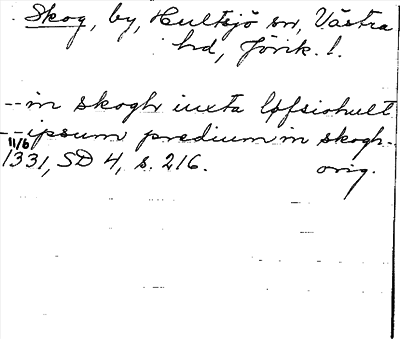 Skog, by, Hultsjö sn, Västra
hd, Jönk. l.
-- in skogh iuxta løfsiohult
-- ipsum predium in skogh.
11/6
1331, SD 4, s. 216. orig.